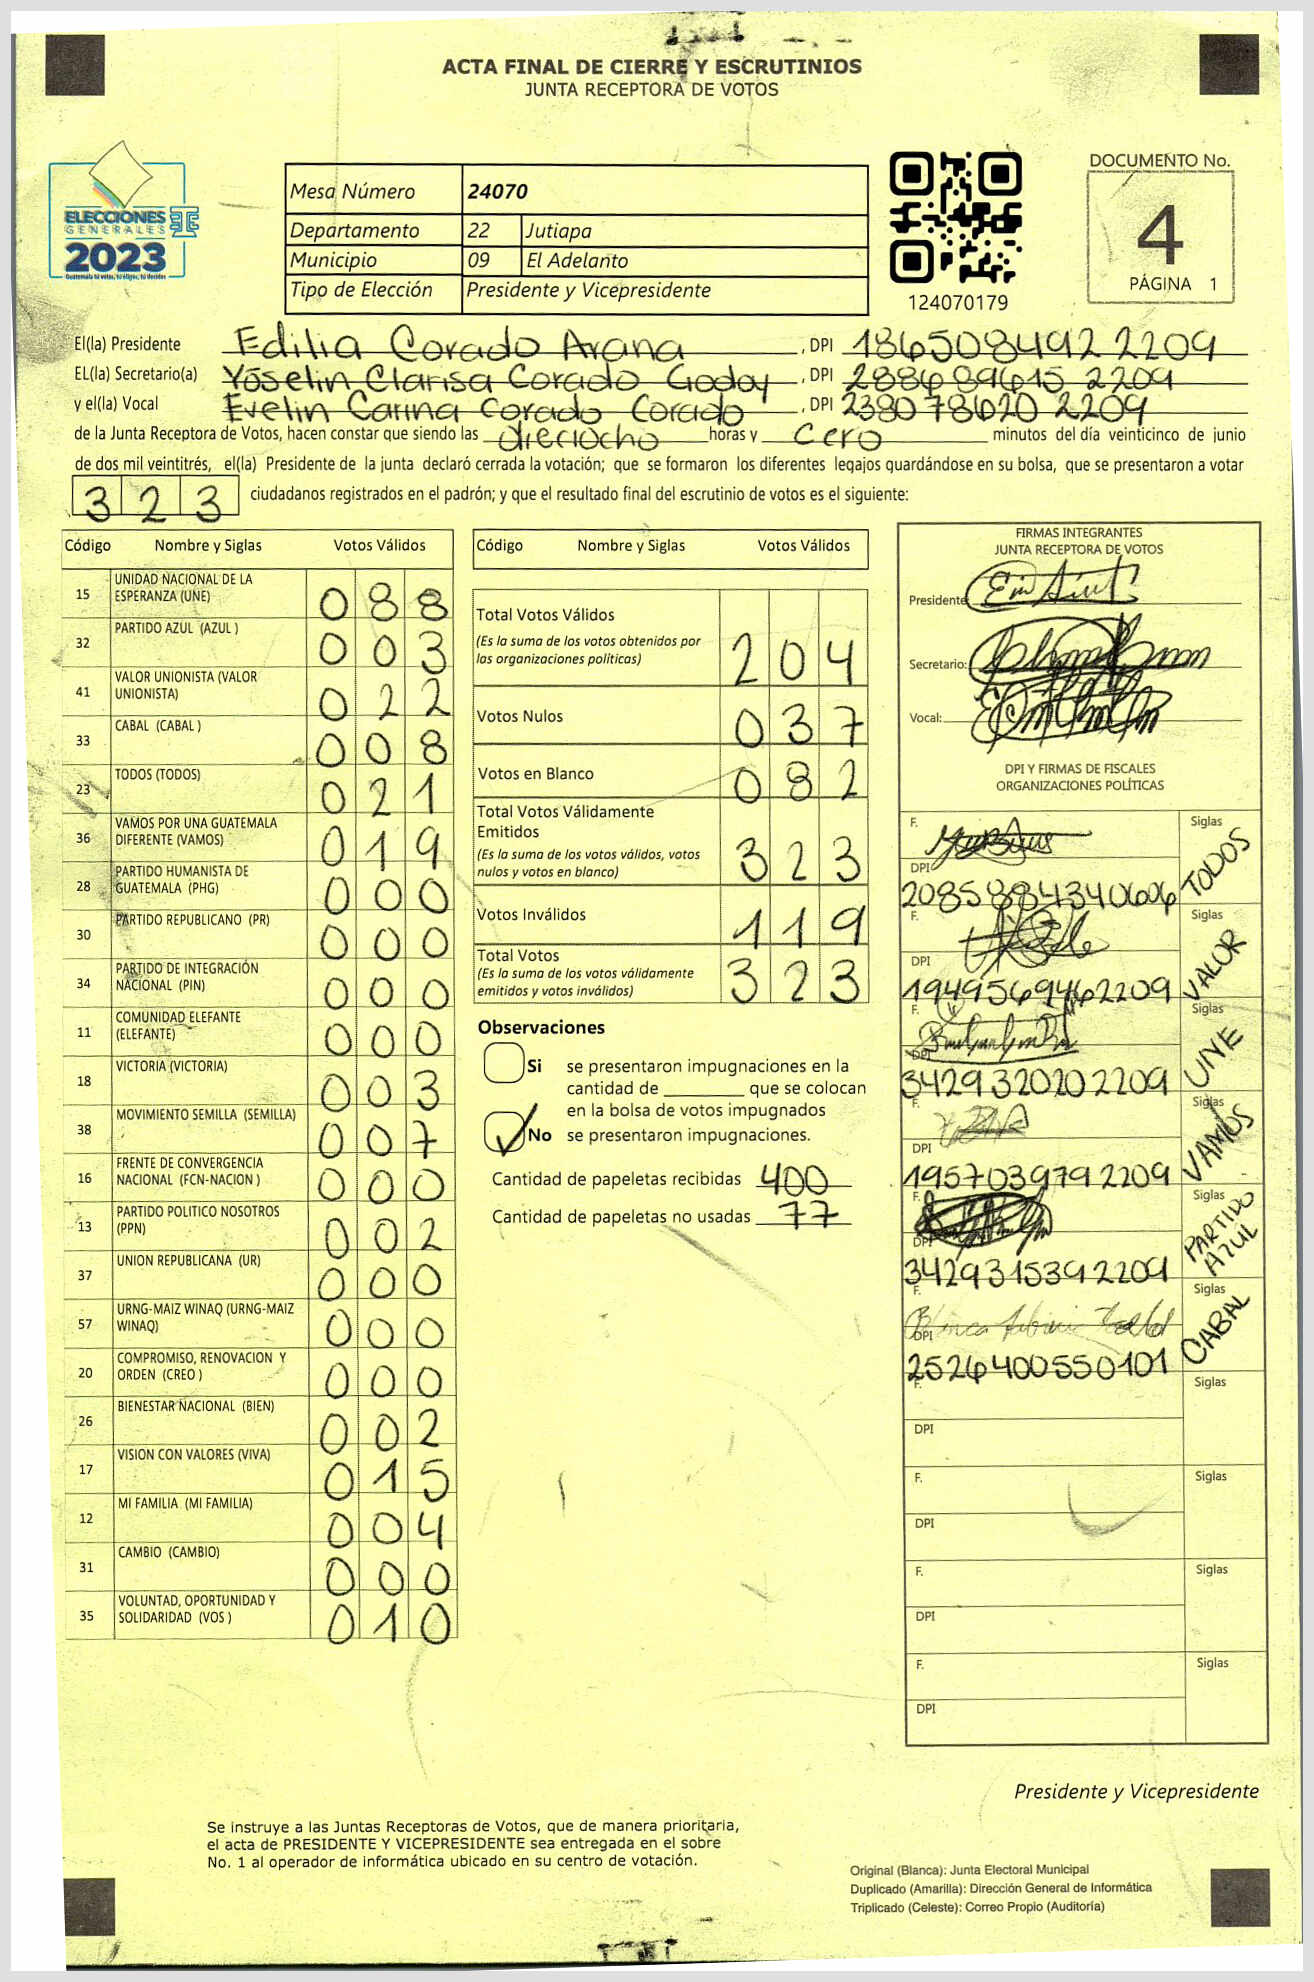 ACTA FINAL DE CIERRE Y ESCRUTINIOS
JUNTA RECEPTORA DE VOTOS
ELECCIONES
GENERALES
2023
Guatemala tú votas, tú eliges, tú decides
Mesa Número 24070
Departamento 22 Jutiapa
Municipio 09 El Adelanto
Tipo de Elección Presidente y Vicepresidente
124070179
DOCUMENTO No.
4
PÁGINA 1
El(la) Presidente Edilia Corado Arana, DPI 1865084922209
EL(la) Secretario(a) Yoselin Clarisa Corado Godoy, DPI 288689615 2209
y el(la) Vocal Evelin Carina Corado Corado, DPI 2380786202209
de la Junta Receptora de Votos, hacen constar que siendo las dieciocho horas y cero minutos del día veinticinco de junio
de dos mil veintitrés, el(la) Presidente de la junta declaró cerrada la votación; que se formaron los diferentes legajos guardándose en su bolsa, que se presentaron a votar
323 ciudadanos registrados en el padrón; y que el resultado final del escrutinio de votos es el siguiente:
Código Nombre y Siglas Votos Válidos
15 UNIDAD NACIONAL DE LA ESPERANZA (UNE) 088
32 PARTIDO AZUL (AZUL ) 003
41 VALOR UNIONISTA (VALOR UNIONISTA) 022
33 CABAL (CABAL ) 008
23 TODOS (TODOS) 021
36 VAMOS POR UNA GUATEMALA DIFERENTE (VAMOS) 019
28 PARTIDO HUMANISTA DE GUATEMALA (PHG) 000
30 PARTIDO REPUBLICANO (PR) 000
34 PARTIDO DE INTEGRACIÓN NACIONAL (PIN) 000
11 COMUNIDAD ELEFANTE (ELEFANTE) 000
18 VICTORIA (VICTORIA) 003
38 MOVIMIENTO SEMILLA (SEMILLA) 007
16 FRENTE DE CONVERGENCIA NACIONAL (FCN-NACION ) 000
13 PARTIDO POLITICO NOSOTROS (PPN) 002
37 UNION REPUBLICANA (UR) 000
57 URNG-MAIZ WINAQ (URNG-MAIZ WINAQ) 000
20 COMPROMISO, RENOVACION Y ORDEN (CREO ) 000
26 BIENESTAR NACIONAL (BIEN) 002
17 VISION CON VALORES (VIVA) 015
12 MI FAMILIA (MI FAMILIA) 004
31 CAMBIO (CAMBIO) 000
35 VOLUNTAD, OPORTUNIDAD Y SOLIDARIDAD (VOS ) 010
Código Nombre y Siglas Votos Válidos
Total Votos Válidos 204
(Es la suma de los votos obtenidos por
las organizaciones políticas)
Votos Nulos 037
Votos en Blanco 082
Total Votos Válidamente
Emitidos 323
(Es la suma de los votos válidos, votos
nulos y votos en blanco)
Votos Inválidos 119
Total Votos 323
(Es la suma de los votos válidamente
emitidos y votos inválidos)
Observaciones
Si se presentaron impugnaciones en la
cantidad de ________ que se colocan
en la bolsa de votos impugnados
No se presentaron impugnaciones.
Cantidad de papeletas recibidas 400
Cantidad de papeletas no usadas 77
FIRMAS INTEGRANTES
JUNTA RECEPTORA DE VOTOS
Presidente:
Secretario:
Vocal:
DPI Y FIRMAS DE FISCALES
ORGANIZACIONES POLÍTICAS
F. Siglas TODOS
DPI 2085884340606
F. Siglas VALOR
DPI 1949569462209
F. Siglas UNE
DPI 3429320202209
F. Siglas VAMOS
DPI 1957039792209
F. Siglas PARTIDO AZUL
DPI 3429315392209
F. Siglas CABAL
DPI 2526400550101
F. Siglas
DPI
F. Siglas
DPI
F. Siglas
DPI
F. Siglas
DPI
Presidente y Vicepresidente
Se instruye a las Juntas Receptoras de Votos, que de manera prioritaria,
el acta de PRESIDENTE Y VICEPRESIDENTE sea entregada en el sobre
No. 1 al operador de informática ubicado en su centro de votación.
Original (Blanca): Junta Electoral Municipal
Duplicado (Amarilla): Dirección General de Informática
Triplicado (Celeste): Correo Propio (Auditoría)